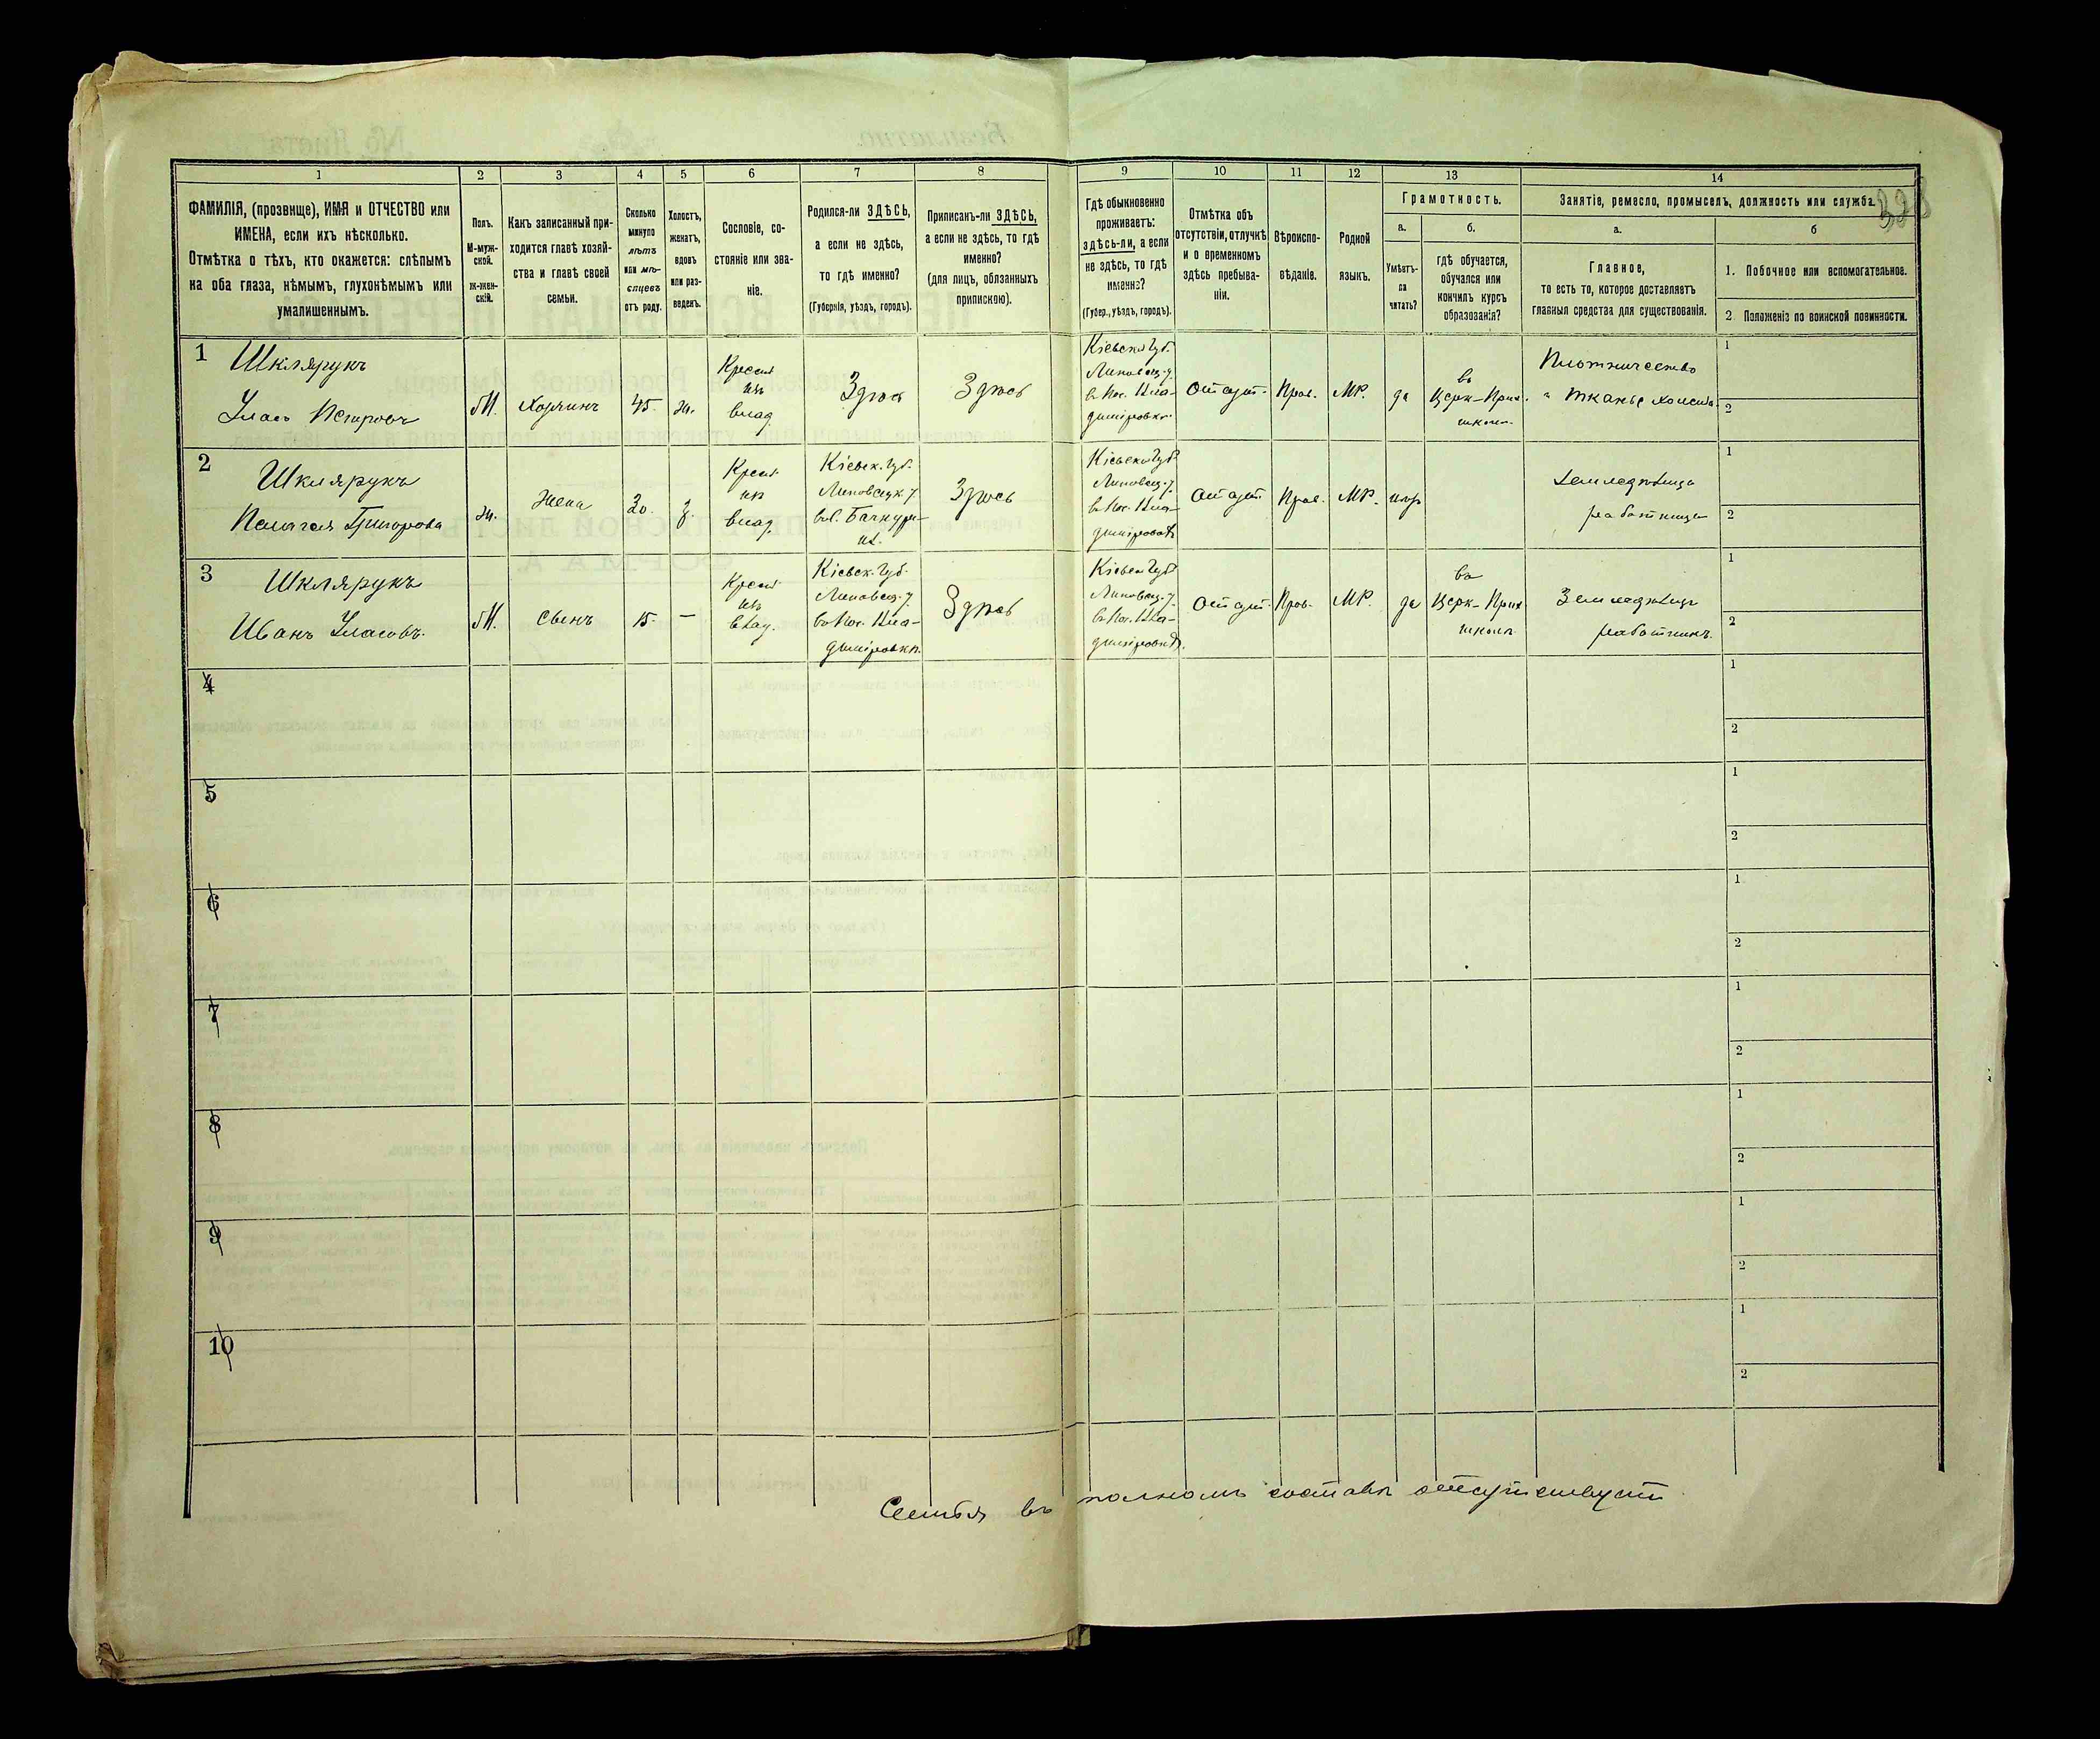 1 2 3 4 5 6 7 8 9 10 11 12 13 14
ФАМИЛІЯ, (прозвище), ИМЯ и ОТЧЕСТВО или
ИМЕНА, если ихъ нѣсколько.
Отмѣтка о тѣхъ, кто окажется: слѣпымъ
на оба глаза, нѣмымъ, глухонѣмымъ или
умалишеннымъ.
Полъ.
М-муж-
ской.
ж-жен-
скій.
Какъ записанный при-
ходится главѣ хозяй-
ства и главѣ своей
семьи.
Сколько
минуло
лѣтъ
или мѣ-
сяцевъ
отъ роду.
Холостъ,
женатъ,
вдовъ
или раз-
веденъ.
Сословіе, со-
стояніе или зва-
ніе.
Родился-ли ЗДѢСЬ,
а если не здѣсь,
то гдѣ именно?
(Губернія, уѣздъ, городъ).
Приписанъ-ли ЗДѢСЬ,
а если не здѣсь, то гдѣ
именно?
(для лицъ, обязанныхъ
припискою).
Гдѣ обыкновенно
проживаетъ:
здѣсь-ли, а если
не здѣсь, то гдѣ
именно?
(Губер., уѣздъ, городъ).
Отмѣтка объ
отсутствіи, отлучкѣ
и о временномъ
здѣсь пребыва-
ніи.
Вѣроиспо-
вѣданіе.
Родной
языкъ.
Грамотность.
а.
Умѣетъ-
ли
читать?
б.
гдѣ обучается,
обучался или
кончилъ курсъ
образованія?
Занятіе, ремесло, промыселъ, должность или служба.
а.
Главное,
то есть то, которое доставляетъ
главныя средства для существованія.
б
1. Побочное или вспомогательное.
2. Положеніе по воинской повинности.
1
Шклярукъ
Уласъ Петровъ
М.
Хозяинъ
45.
ж.
Крест
изъ
влад.
Здѣсь
Здѣсь
Кіевской Губ.
Липовец. у.
въ Пос. Вла-
диміровкѣ.
Отсут.
Прав.
МР.
да
въ
Церк-Прих.
школѣ.
Плотничество
и тканье холста.
1
2
2
Шклярукъ
Пелагея Григорова
ж.
Жена
30.
з.
Крест.
из
влад.
Кіевск. Губ.
Липовецк. у.
Здѣсь
Кіевской Губ.
Липовец. у.
въ Пос. Вла-
диміровкѣ
Отсут.
Прав.
МР.
нѣтъ
Земледѣлица
работница
1
2
3
Шклярукъ
Иванъ Уласовъ.
М.
Сынъ
15.
—
Крест
изъ
влад.
Кіевск. Губ.
Липовец. у.
въ Пос. Вла-
диміровкѣ.
Здѣсь
Кіевск Губ.
Липовец. у.
въ Пос. Вла-
диміровкѣ.
Отсут.
Прав.
МР.
да
въ
Церк-Прих
школѣ
Земледѣлецъ
работникъ.
1
2
4
1
2
5
1
2
6
1
2
7
1
2
8
1
2
9
1
2
10
1
2
Семья въ полномъ составѣ отсутствуетъ